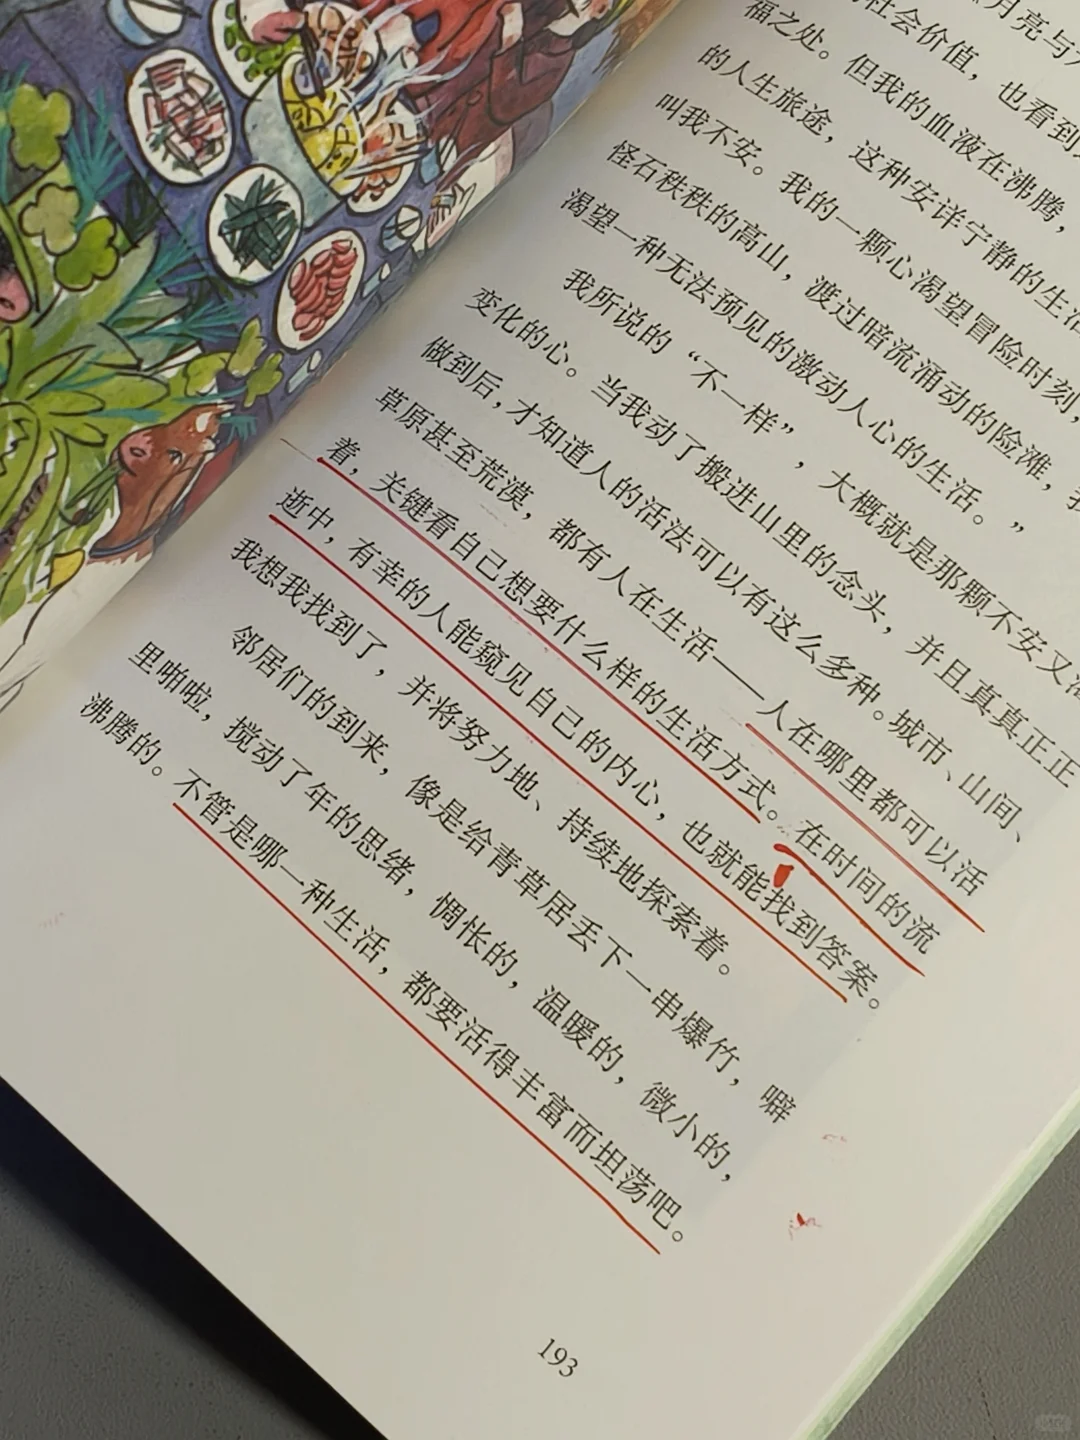 《月亮与六
社会价值，也看到
福之处。但我的血液在沸腾，
的人生旅途，这种安详宁静的生活
叫我不安。我的一颗心渴望冒险时刻，
怪石秩秩的高山，渡过暗流涌动的险滩，我
渴望一种无法预见的激动人心的生活。”
我所说的“不一样”，大概就是那颗不安又渴
变化的心。当我动了搬进山里的念头，并且真真正正
做到后，才知道人的活法可以有这么多种。城市、山间、
草原甚至荒漠，都有人在生活——人在哪里都可以活
着，关键看自己想要什么样的生活方式。在时间的流
逝中，有幸的人能窥见自己的内心，也就能找到答案。
我想我找到了，并将努力地、持续地探索着。
邻居们的到来，像是给青草居丢下一串爆竹，噼
里啪啦，搅动了年的思绪，惆怅的，温暖的，微小的，
沸腾的。不管是哪一种生活，都要活得丰富而坦荡吧。
193